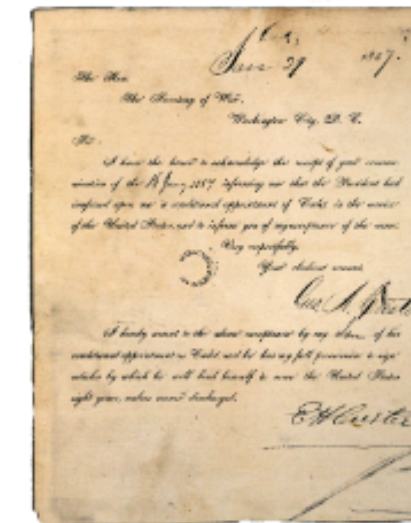 Jan 29 1857.
The Hon.
The Secretary of War.
Washington City, D. C.
Sir:
I have the honor to acknowledge the receipt of your commu-
nication of the Jany 1857 informing me that the President has
conferred upon me a conditional appointment of Cadet in the service
of the United States, and to inform you of my acceptance of the same.
Very respectfully,
Your obedient servant,
Geo A.
I hereby assent to the above acceptance by my of his
conditional appointment as Cadet, and he has my full permission to sign
articles by which he will bind himself to serve the United States
eight years, unless sooner discharged.
E H Custer